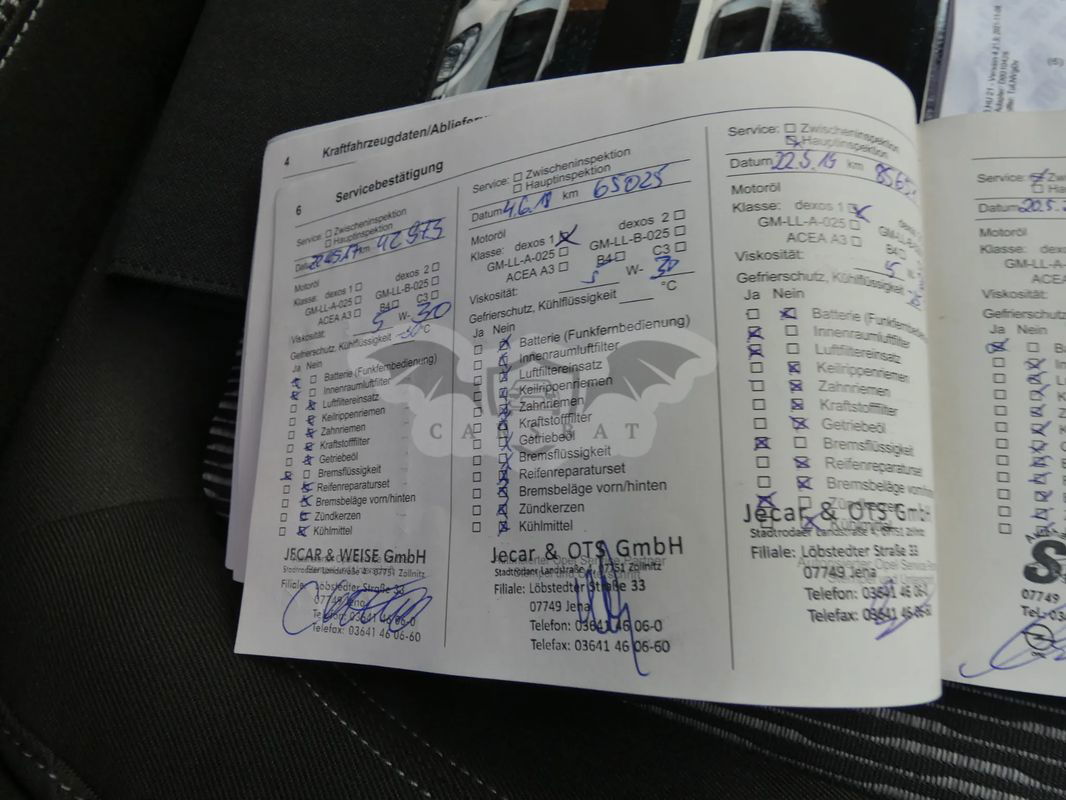 4 Kraftfahrzeugdaten/Ablieferu
6 Servicebestätigung
Service: Zwischeninspektion
Hauptinspektion
km 42 973
Motoröl
Klasse: dexos 1 dexos 2
GM-LL-A-025 GM-LL-B-025
ACEA A3 B4 C3
Viskosität: 5 W- 30
Gefrierschutz, Kühlflüssigkeit °C
Ja Nein
Batterie (Funkfernbedienung)
Innenraumluftfilter
Luftfiltereinsatz
Keilrippenriemen
Zahnriemen
Kraftstofffilter
Getriebeöl
Bremsflüssigkeit
Reifenreparaturset
Bremsbeläge vorn/hinten
Zündkerzen
Kühlmittel
JECAR & WEISE GmbH
07751 Zöllnitz
Filiale: Löbstedter Straße 33
07749 Jena
Telefon: 03641 46 06-0
Telefax: 03641 46 06-60
Service: Zwischeninspektion
Hauptinspektion
Datum 4.6.18 km 65025
Motoröl
Klasse: dexos 1 dexos 2
GM-LL-A-025 GM-LL-B-025
ACEA A3 B4 C3
Viskosität: 5 W- 30
Gefrierschutz, Kühlflüssigkeit °C
Ja Nein
Batterie (Funkfernbedienung)
Innenraumluftfilter
Luftfiltereinsatz
Keilrippenriemen
Zahnriemen
Kraftstofffilter
Getriebeöl
Bremsflüssigkeit
Reifenreparaturset
Bremsbeläge vorn/hinten
Zündkerzen
Kühlmittel
Jecar & OTS GmbH
Stadtrodaer Landstraße 4, 07751 Zöllnitz
Filiale: Löbstedter Straße 33
07749 Jena
Telefon: 03641 46 06-0
Telefax: 03641 46 06-60
Service: Zwischeninspektion
Hauptinspektion
Datum 22.5.19 km
Motoröl
Klasse: dexos 1 dexos
GM-LL-A-025 GM-LL
ACEA A3 B4
Viskosität: 5
Gefrierschutz, Kühlflüssigkeit
Ja Nein
Batterie (Funkfernbe
Innenraumluftfilter
Luftfiltereinsatz
Keilrippenriemen
Zahnriemen
Kraftstofffilter
Getriebeöl
Bremsflüssigkeit
Reifenreparaturset
Bremsbeläge vorn/
Jecar & OTS GmbH
Stadtrodaer Landstraße 4, 07751 Zöllnitz
Filiale: Löbstedter Straße 33
07749 Jena
Telefon: 03641 46 06-0
Telefax: 03641 46 06-60
Service: Zw
Datum
Motoröl
Klasse:
GM-LL-A-
ACEA
Viskosität:
Gefrierschutz
Ja Nein
S
07749
CARSBAT